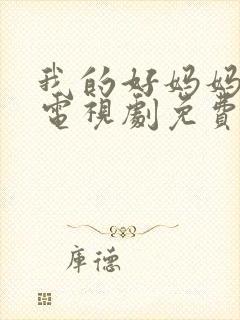 我的好妈妈
電視劇免費
庫德